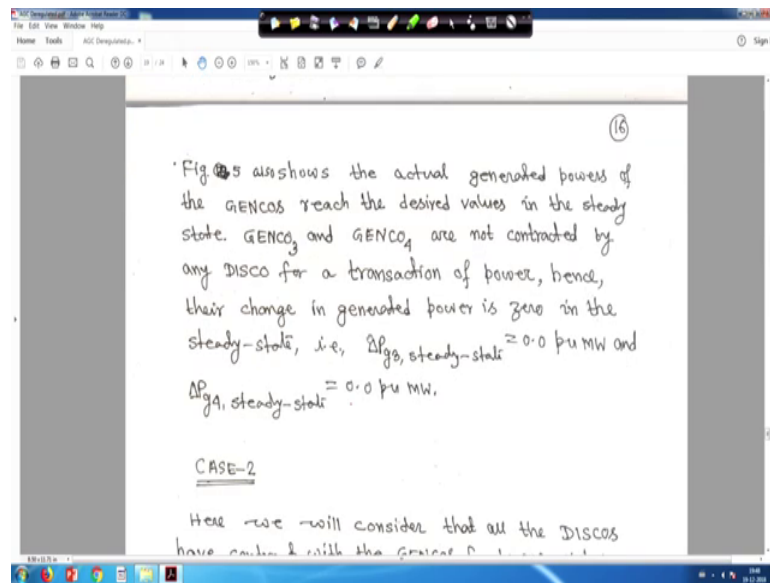 AGC Deregulated.pdf - Adobe Acrobat Reader DC
File Edit View Window Help
Home Tools AGC Deregulated.p... ×
Sign
(16)
Fig. 5 also shows the actual generated powers of
the GENCOS reach the desired values in the steady
state. GENCO3 and GENCO4 are not contracted by
any DISCO for a transaction of power, hence,
their change in generated power is zero in the
steady-state, i.e., ΔPg3, steady-state = 0.0 pu MW and
ΔPg4, steady-state = 0.0 pu MW.
CASE-2
Here we will consider that all the DISCOS
have with the GENCOS